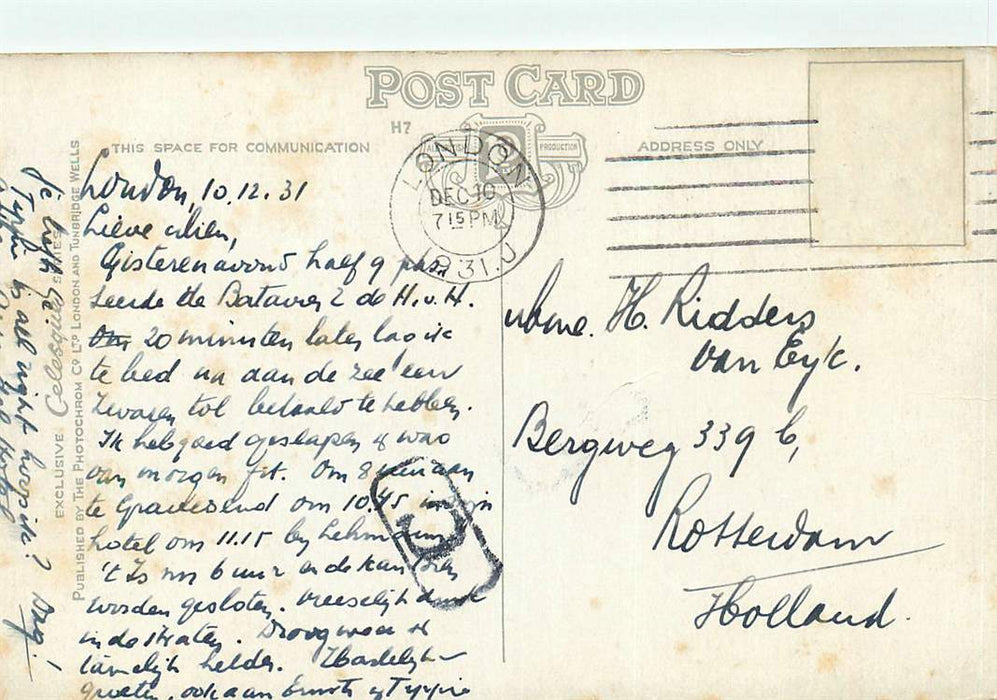 POST CARD
H7
THIS SPACE FOR COMMUNICATION
PRODUCTION
ADDRESS ONLY
LONDON
DEC 10
7 15 PM
1931. J
London, 10.12.31
Lieve
Gisterenavond half 9 pas
seerde de Batavier 2 de H.v.H.
20 minuten later lag ik
te bed na aan de zee een
zwaren tol betaald te hebben.
Ik heb goed geslapen & was
van morgen fit. Om 8 uur aan
te Gravesend om 10.45 in mijn
hotel om 11.15 by
't Is nu 6 uur en de kan
worden gesloten. Vreeselijk druk
in de straten. Droog weer &
tamelijk helder. Hartelijke
groeten, ook aan
Mme. H. Ridders
van Eyk.
Bergweg 339 b,
Rotterdam
Holland.
EXCLUSIVE Celesque SERIES
PUBLISHED BY THE PHOTOCHROM Co. LTD. LONDON AND TUNBRIDGE WELLS
all right
Dag!